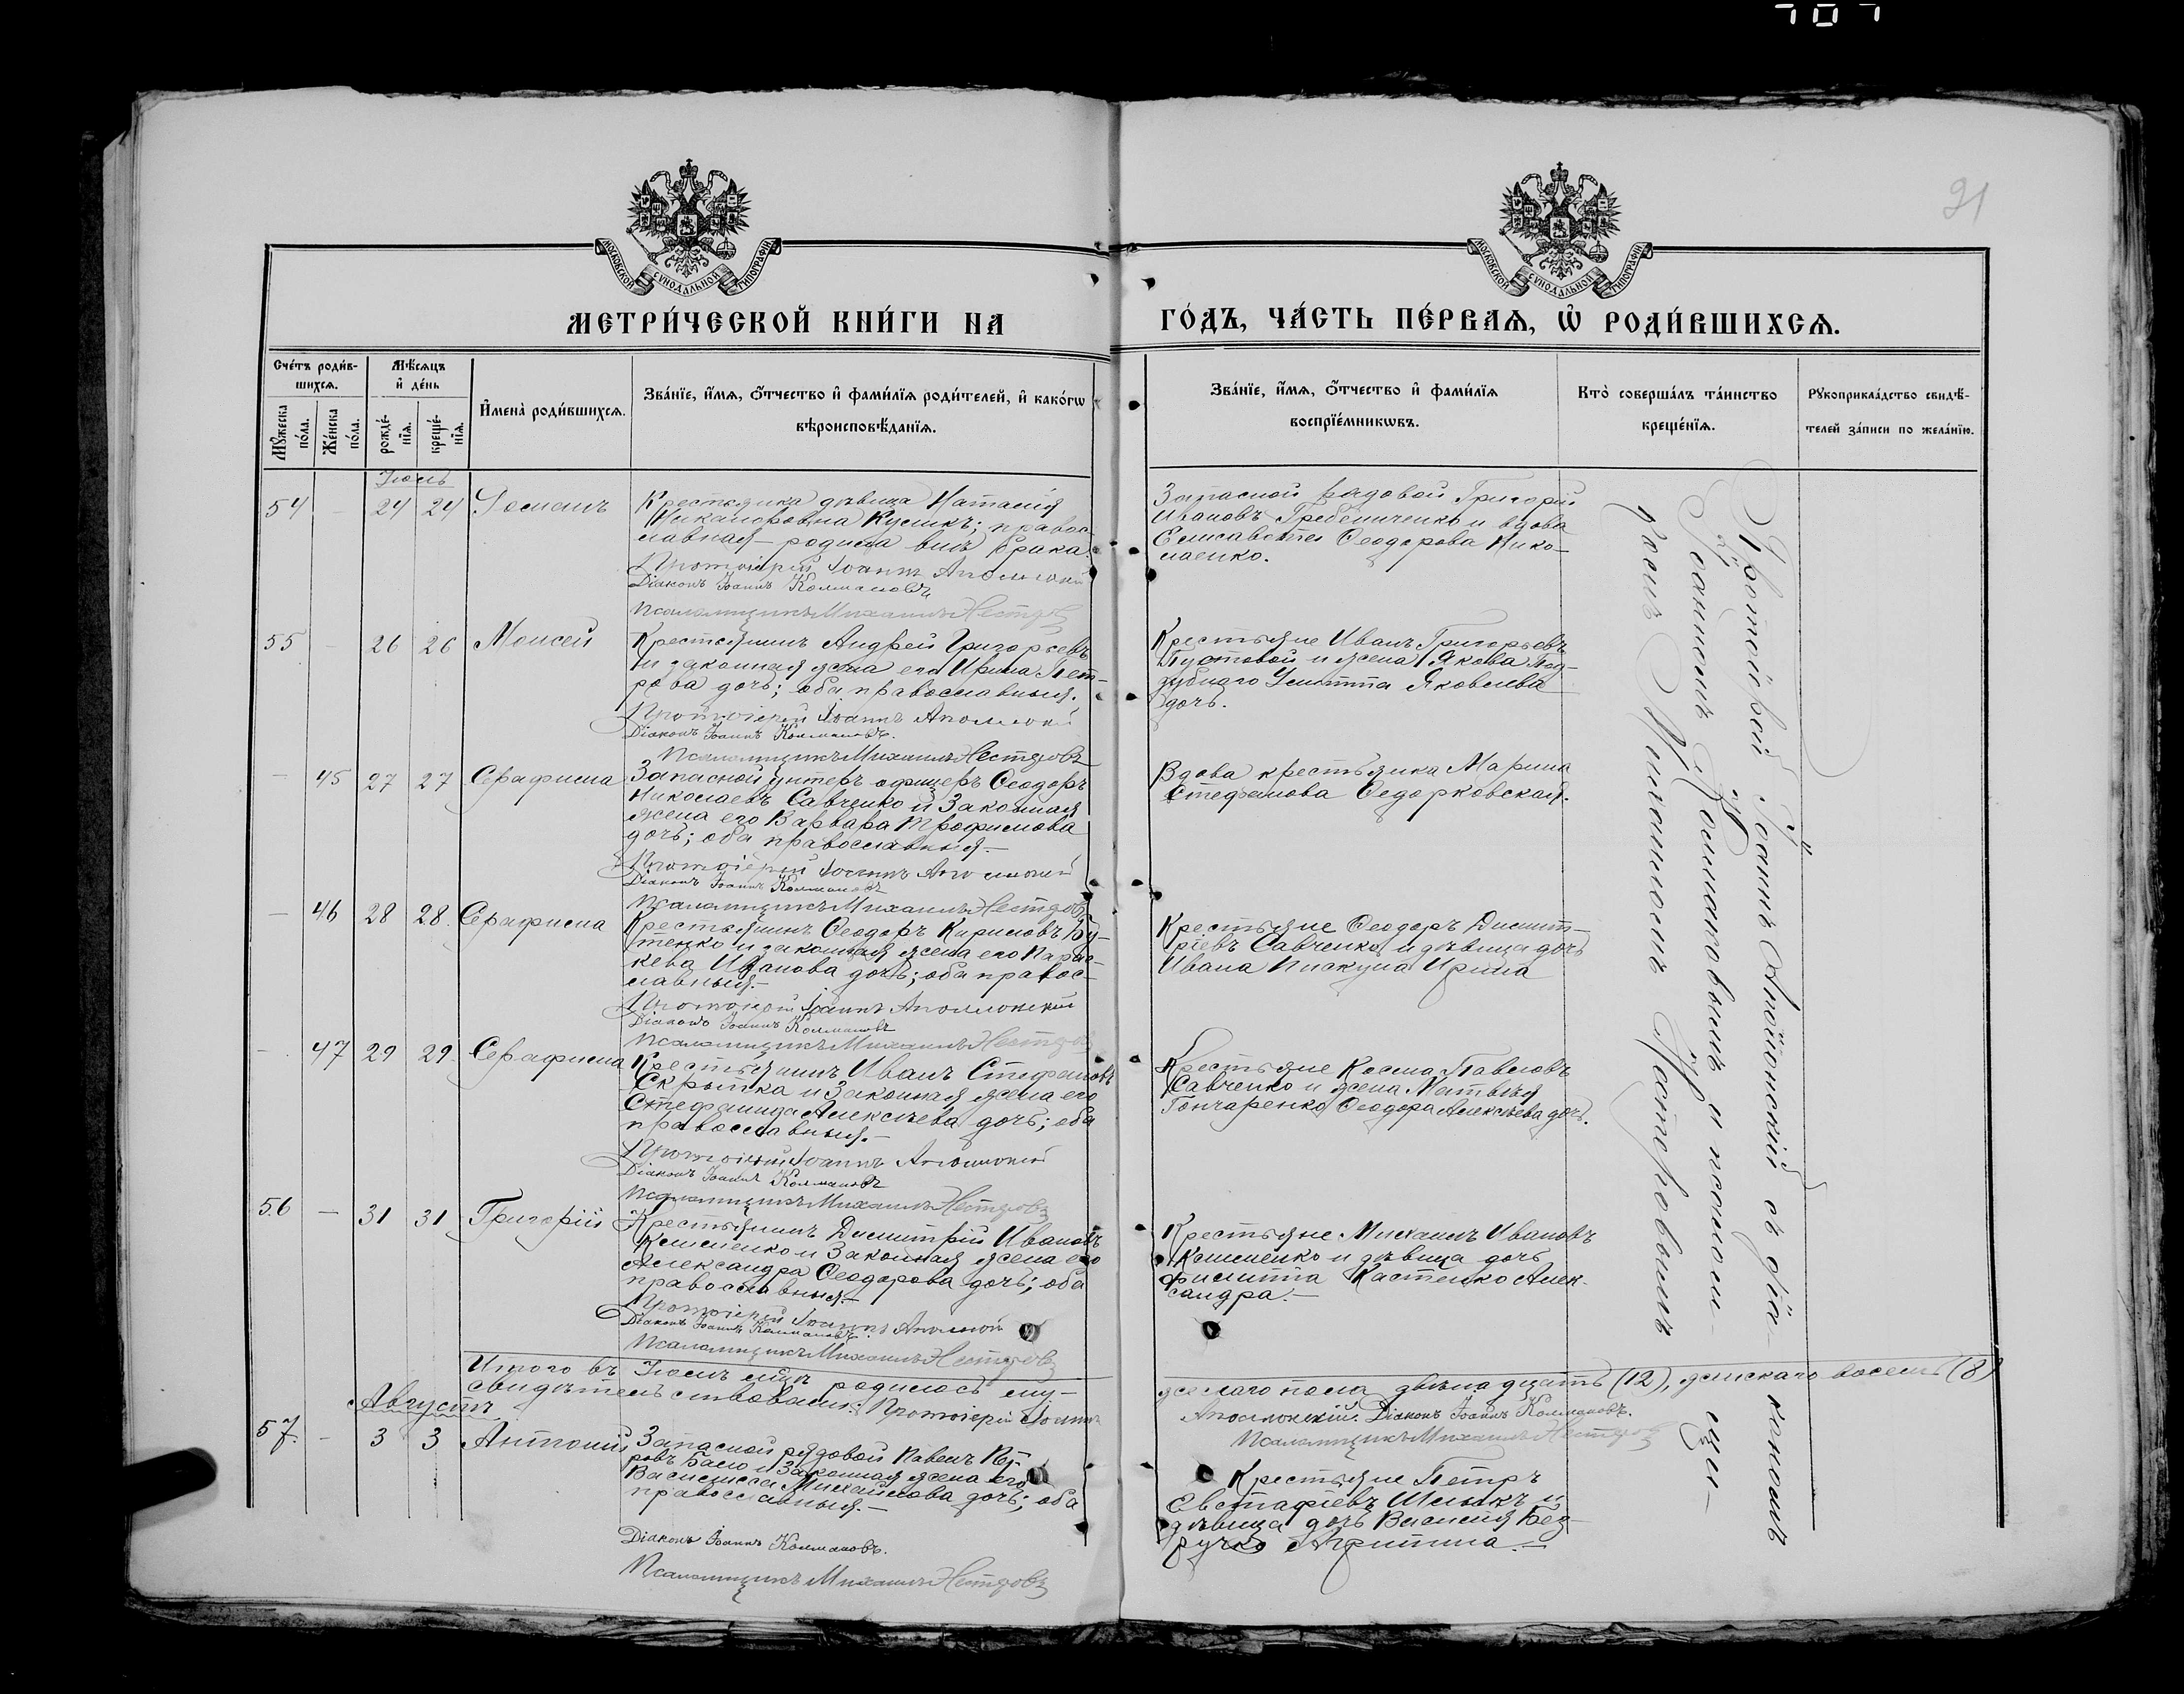 707
91
МОСКОВСКОЙ СѴНОДАЛЬНОЙ ТИПОГРАФІИ
МОСКОВСКОЙ СѴНОДАЛЬНОЙ ТИПОГРАФІИ
МЕТРИ́ЧЕСКОЙ КНИ́ГИ НА
ГО́ДЪ, ЧА́СТЬ ПЕ́РВАѦ, Ѡ҆ РОДИ́ВШИХСѦ.
Сче́тъ роди́в-
шихсѧ.
Мꙋ́жеска по́ла.
Же́нска по́ла.
Мѣ́сѧцъ и҆ де́нь
рожде́-
нїѧ.
креще́-
нїѧ.
И҆мена̀ роди́вшихсѧ.
Зва́нїе, и҆́мѧ, ѻ҆́тчество и҆ фами́лїѧ роди́телей, и҆ како́гѡ
вѣроисповѣ́данїѧ.
Зва́нїе, и҆́мѧ, ѻ҆́тчество и҆ фами́лїѧ
воспрїе́мникѡвъ.
Кто̀ соверша́лъ та́инство
креще́нїѧ.
Рꙋкоприкла́дство свидѣ́-
телей за́писи по жела́нїю.
Іюль
54 - 24 24 Романъ
Крестьянка дѣвица Наталія
Никаноровна Куликъ; правос
лавная - родила внѣ брака.
Протоіерей Іоаннъ Аполлонскій
Діаконъ Іоаннъ Колмановъ
Псаломщикъ Михаилъ Нестеровъ
Запасной рядовой Григорій
Ивановъ Гребенниченко и вдова
Елисавета Ѳеодорова Нико-
лаенко.
55 - 26 26 Моисей
Крестьянинъ Андрей Григорьевъ
и законная жена его Ирина Пет-
рова дочь; оба православныя.
Протоіерей Іоаннъ Аполлонскій
Діаконъ Іоаннъ Колмановъ.
Псаломщикъ Михаилъ Нестеровъ
Крестьяне Иванъ Григорьевъ
Пустовой и жена Якова Под-
зубнаго Улитта Яковлева
дочь.
- 45 27 27 Серафима
Запасной унтеръ-офицеръ Ѳеодоръ
Николаевъ Савченко и законная
жена его Варвара Трофимова
дочь; оба православныя.-
Протоіерей Іоаннъ Аполлонскій
Діаконъ Іоаннъ Колмановъ
Псаломщикъ Михаилъ Нестеровъ
Вдова крестьянка Марина
Стефанова Ѳедорковская.
- 46 28 28 Серафима
Крестьянинъ Ѳеодоръ Кириловъ Бу-
тенко и законная жена его Парас-
кева Иванова дочь; оба правос-
лавныя.-
Протоіерей Іоаннъ Аполлонскій
Діаконъ Іоаннъ Колмановъ
Псаломщикъ Михаилъ Нестеровъ
Крестьяне Ѳеодоръ Димит-
ріевъ Савченко и дѣвица дочь
Ивана Пискуна Ирина
- 47 29 29. Серафима
Крестьянинъ Иванъ Стефановъ
Скрыпка и законная жена его
Стефанида Алексѣева дочь; оба
православныя.-
Протоіерей Іоаннъ Аполлонскій
Діаконъ Іоаннъ Колмановъ
Псаломщикъ Михаилъ Нестеровъ
Крестьяне Косма Павловъ
Савченко и жена Матвѣя
Гончаренко Ѳеодора Алексѣева дочь.
56 - 31 31 Григорій
Крестьянинъ Димитрій Ивановъ
Клименко и законная жена его
Александра Ѳеодорова дочь; оба
православныя.-
Протоіерей Іоаннъ Аполлонскій
Діаконъ Іоаннъ Колмановъ.
Псаломщикъ Михаилъ Нестеровъ
Крестьяне Михаилъ Ивановъ
Клименко и дѣвица дочь
Филиппа Костенко Алек-
сандра.-
Итого въ Іюлѣ м-цѣ родилось му-
жескаго пола двѣнадцать (12), женскаго восемь (8)
свидѣтельствовали: Протоіерей Іоаннъ
Аполлонскій. Діаконъ Іоаннъ Колмановъ.
Псаломщикъ Михаилъ Нестеровъ
Августъ
57. - 3 3 Антоній
Запасной рядовой Павелъ Пет-
ровъ Бало и законная жена его
Василисса Михайлова дочь; оба
православныя.-
Діаконъ Іоаннъ Колмановъ.
Псаломщикъ Михаилъ Нестеровъ
Крестьяне Петръ
Евстафіевъ Шлыкъ и
дѣвица дочь Василія Без-
ручко Агрипина.-
Протоіерей Іоаннъ Аполлонскій съ діа- кономъ
Іоанномъ Колмановымъ и псалом- щи-
комъ Михаиломъ Нестеровымъ